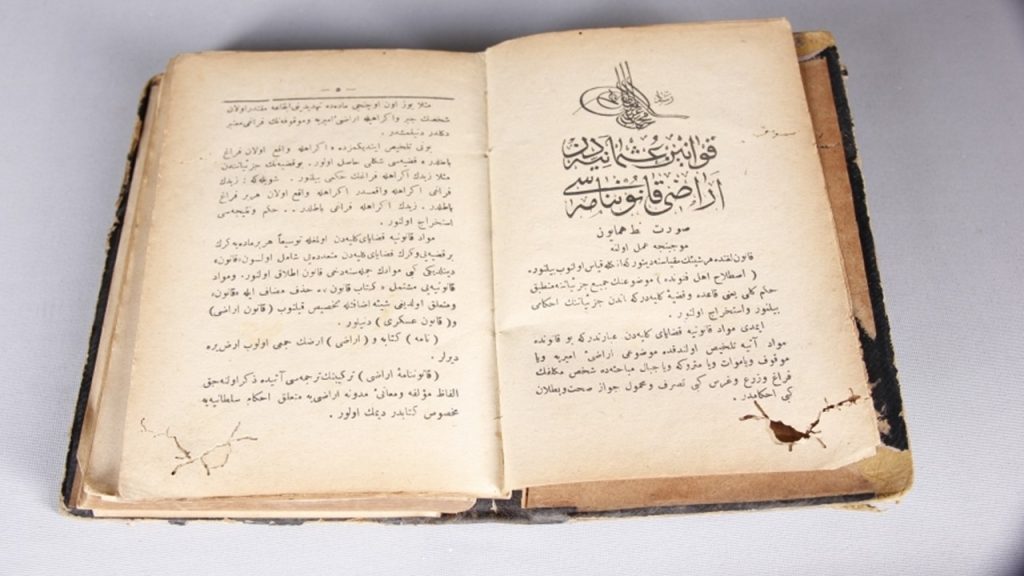 قوانین عثمانیه‌دن
اراضی قانوننامه‌سی
صورت خط همایون
موجبنجه عمل اولنه
قانون لغتده هر شیئك مقیاسنه دینور که انکله قیاس اولنوب بیلنور.
( اصطلاح اهل فنونده ) موضوعنك جمیع جزئیاتنه منطبق
حکم کلی یعنی قاعده و قضیهٔ کلیه‌در که اندن جزئیاتنك احکامی
بیلنور و استخراج اولنور .
ایمدی مواد قانونیه قضایای کلیه‌دن عبارتدر که بو قانونده
مواد آتیه تلخیص اولندقده موضوعی اراضیٔ امیریه ویا
موقوفه ویا موات ویا متروکه ویا جبال مباحه‌ده شخص مکلفك
فراغ وزرع وغرس کبی تصرف ومحمول جواز صحت وبطلان
کبی احکامدر.
— ٥ —
مثلا یوز اون اوچنجی ماده‌ده تهدیدینی ایقاعه مقتدر اولان
شخصك جبر واکراهیله اراضیٔ امیریه وموقوفه‌نك فراغی معتبر
دکلدر دنیلمشدر.
بونی تلخیص ایتدیکمزده « اکراهله واقع اولان فراغ
باطلدر » قضیه‌سی شکلی حاصل اولور. بو قضیه‌نك جزئیاتندن
مثلا زیدك اکراهله فراغنك حکمی بیلنور . شویله‌که : زیدك
فراغی اکراهله واقعدر اکراهله واقع اولان هر بر فراغ
باطلدر . زیدك اکراهله فراغی باطلدر .. حکم ونتیجه‌سی
استخراج اولنور .
مواد قانونیه قضایای کلیه‌دن اولمغله توسیعاً هر بر ماده‌یه کرك
بر قضیه‌یی وکرك قضایای کلیه‌دن متعدده‌یی شامل اولسون «قانون»
دینلدیکی کبی موادك جمله‌سنه دخی قانون اطلاق اولنور. ومواد
قانونیه‌یی مشتمل « کتاب قانون » ده حذف مضاف ایله «قانون»
ومتعلق اولدیغی شیئه اضافتله تخصیص قیلنوب ( قانون اراضی )
و ( قانون عسکری ) دنیلور .
( نامه ) کتابه و ( اراضی ) ارضك جمعی اولوب ارض یره
دیرلر .
( قانوننامهٔ اراضی ) ترکیبنك ترجمه‌سی آتیده ذکر اولنه‌جق
الفاظ مؤلفه ومعانیٔ مدونه اراضی‌یه متعلق احکام سلطانیه‌یه
مخصوص کتابدر دیمك اولور .